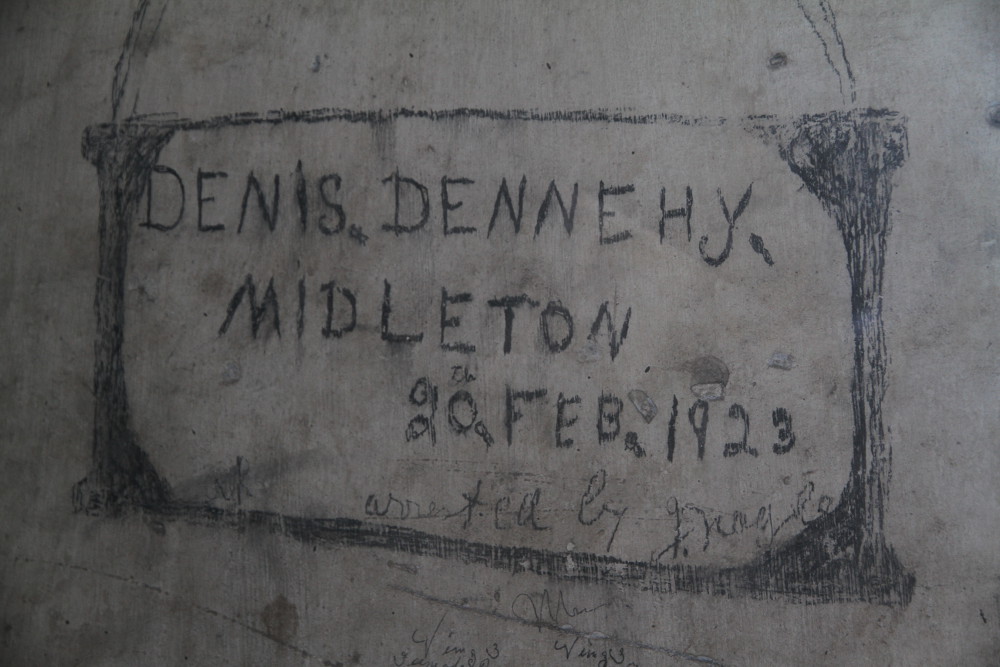 DENIS. DENNEHY.
MIDLETON
20th FEB. 1923
arrested by
Wing 3
Wing 3